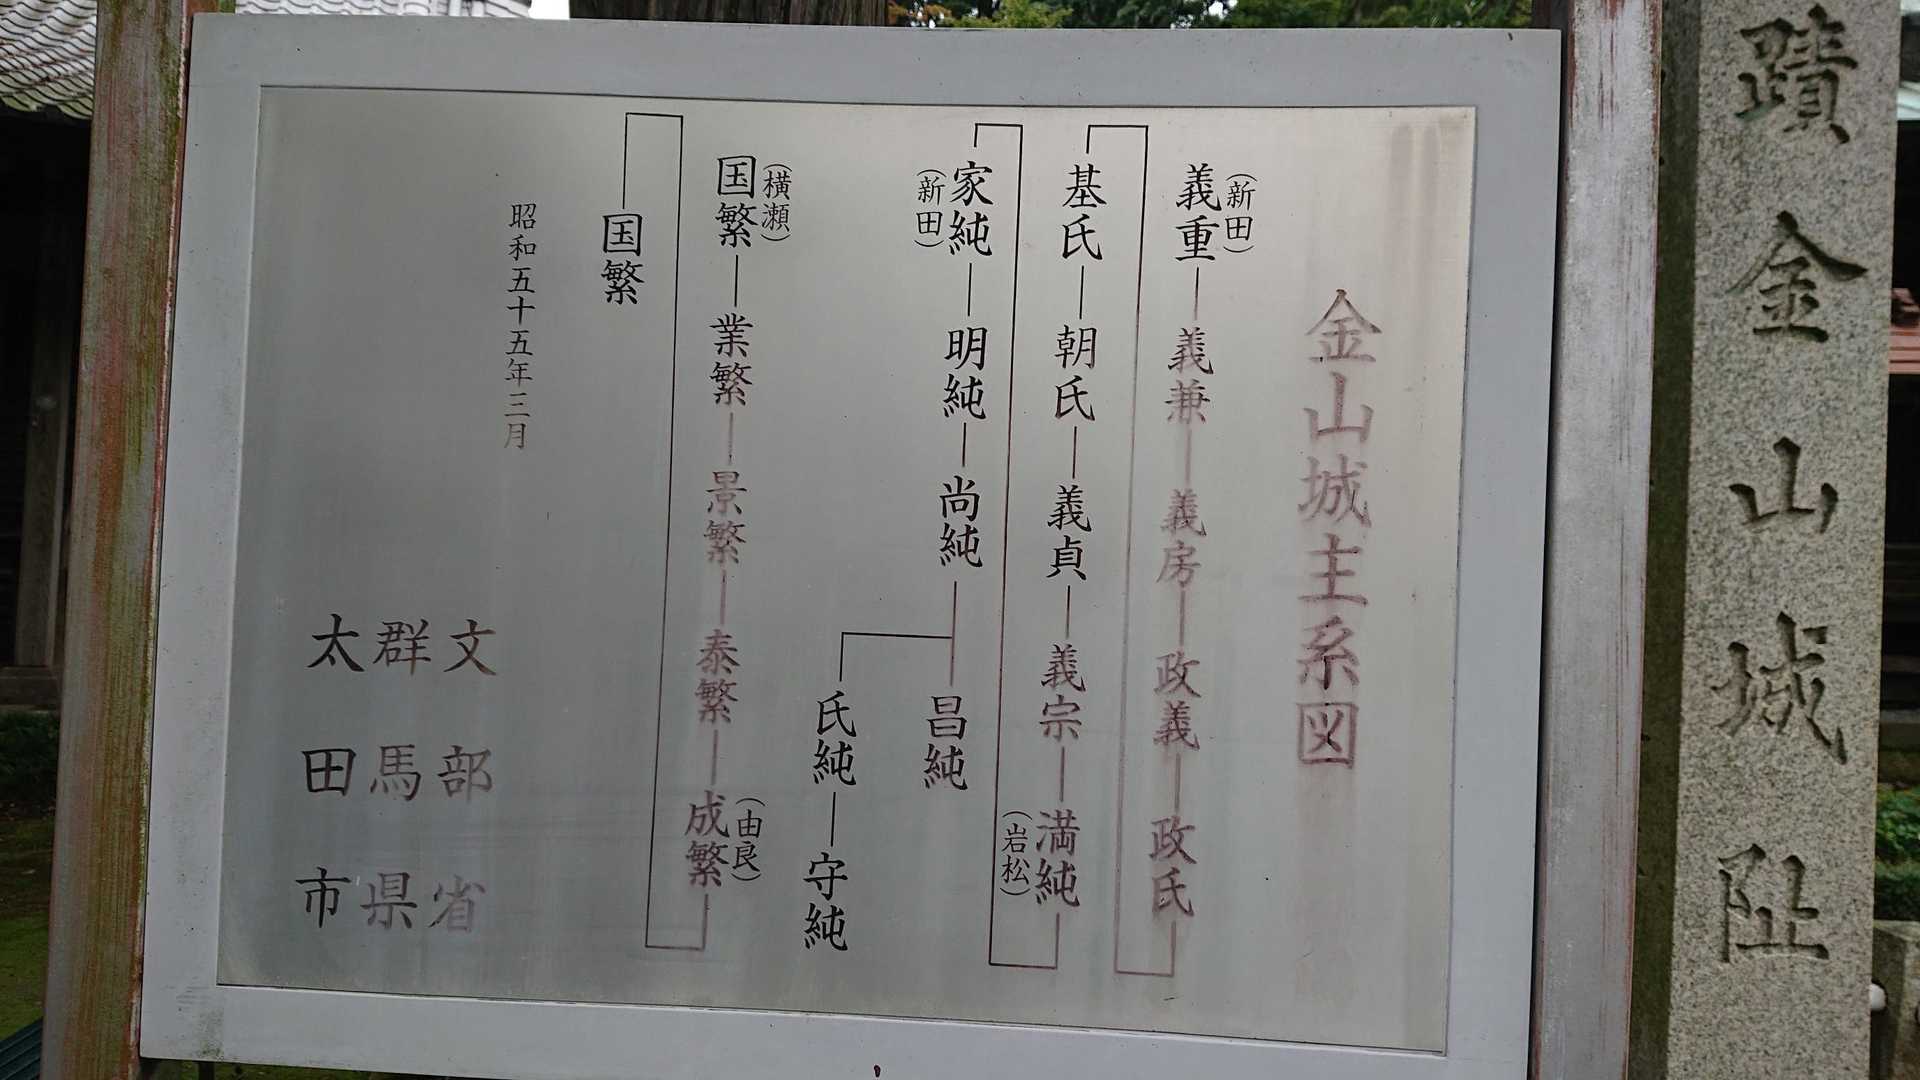 蹟金山城阯
金山城主系図
(新田)
義重―義兼―義房―政義―政氏
基氏―朝氏―義貞―義宗―満純
(岩松)
家純―明純―尚純―昌純
(新田)
氏純―守純
(横瀬)
国繁―業繁―景繁―泰繁―成繁
(由良)
国繁
昭和五十五年三月
文部省
群馬県
太田市